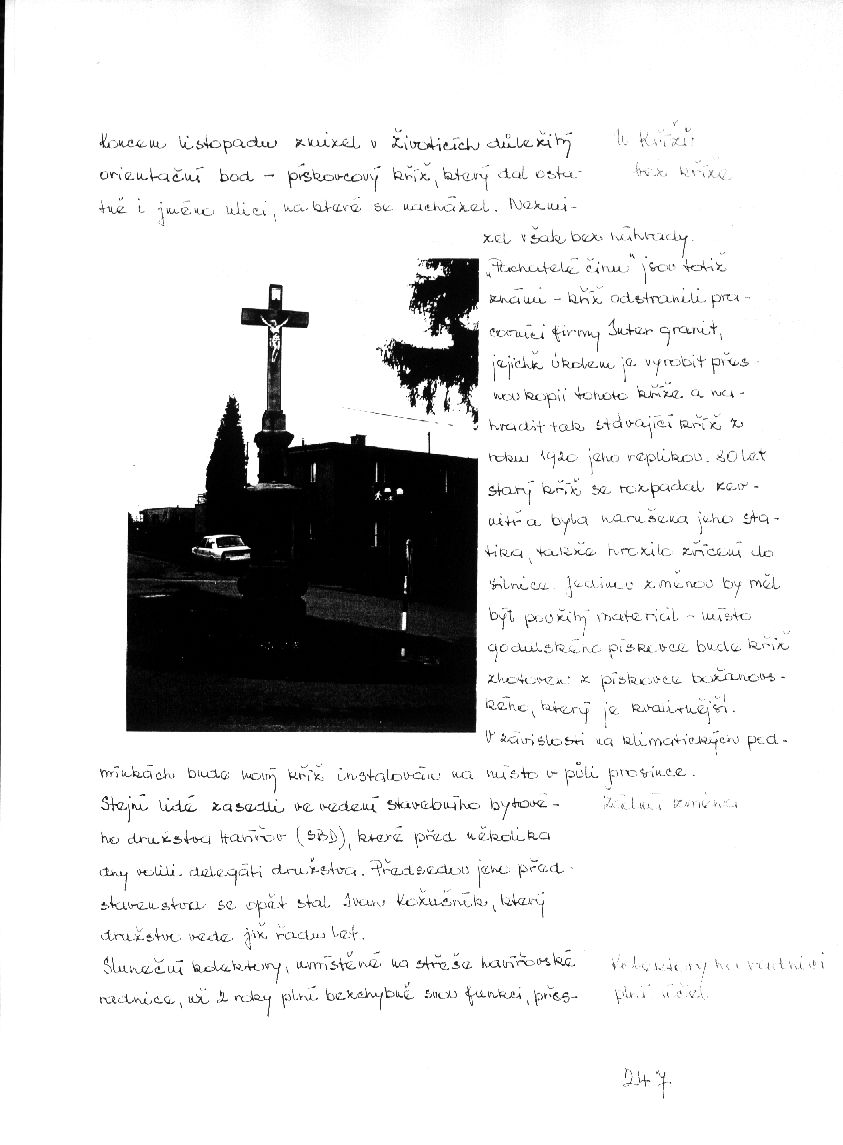 Koncem listopadu zmizel v Životicích důležitý
U Křížů
orientační bod – pískovcový kříž, který dal osta-
bez kříže
tně i jméno ulici, na které se nacházel. Nezmi-
zel však bez náhrady.
„Pachatelé činu" jsou totiž
známi – kříž odstranili pra-
covníci firmy Inter granit,
jejichž úkolem je vyrobit přes-
nou kopii tohoto kříže a na-
hradit tak stávající kříž z
roku 1920 jeho replikou. 80 let
starý kříž se rozpadal zev-
nitř a byla narušena jeho sta-
tika, takže hrozilo zřícení do
silnice. Jedinou změnou by měl
být použitý materiál – místo
godulského pískovce bude kříž
zhotoven z pískovce božanovs-
kého, který je kvalitnější.
V závislosti na klimatických pod-
mínkách bude nový kříž instalován na místo v půli prosince.
Stejní lidé zasedli ve vedení stavebního bytové-
Žádná změna
ho družstva Havířov (SBD), které před několika
dny volili delegáti družstva. Předsedou jeho před-
stavenstva se opět stal Ivan Kožučník, který
družstvo vede již řadu let.
Sluneční kolektory, umístěné na střeše havířovské
Kolektory na radnici
radnice, už 2 roky plní bezchybně svou funkci, přes-
plní účel
247.